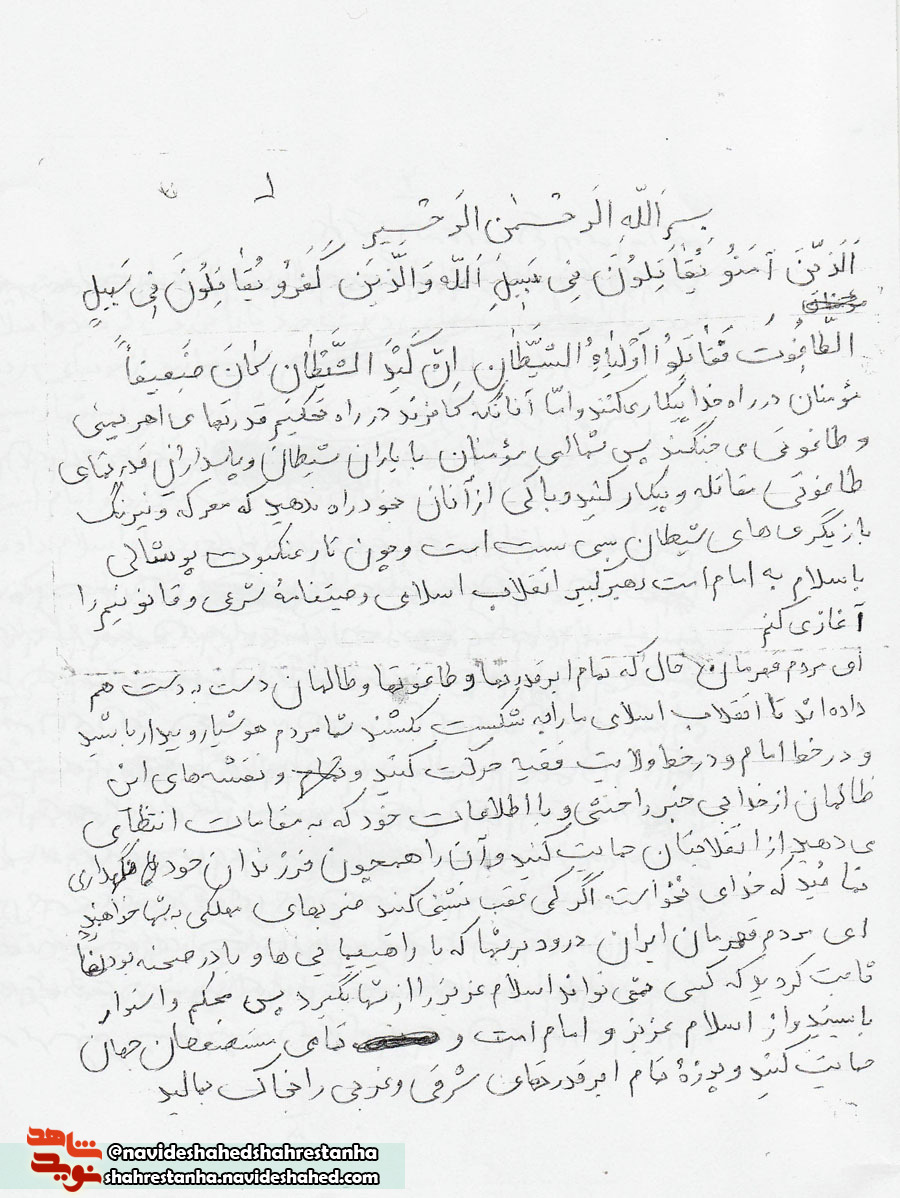 ۱
بسم الله الرحمن الرحیم
اَلَذّینَ آمَنوُ یُقٰاتِلوُنَ فِی سَبیلِ اَللّه وَالَّذینَ کَفَروُ یُقٰاتِلوُنَ فِی سَبیلِ
الطّاغُوت فَقٰاتِلوُا اَوْلیٰاءِ الشَیَّطٰانِ اِنَّ کَیْدَ الشَّیْطٰان کٰانَ ضَعیفاً
مؤمنان در راه خدا پیکار می کنند و امّا آنانکه کافرند در راه تحکیم قدرتهای اهریمنی
و طاغوتی می جنگند پس شما ای مؤمنان با یاران شیطان و پاسداران قدرتهای
طاغوتی مقاتله و پیکار کنید و باکی از آنان بخود راه ندهید که معرکه و نیرنگ
بازیگری های شیطان بسی سست است و چون تار عنکبوت پوشالی
با سلام به امام امت رهبر کبیر انقلاب اسلامی وصیتنامهٔ شرعی و قانونیم را
آغاز می کنم
ای مردم قهرمان حال که تمام ابرقدرتها و طاغوتها و ظالمان دست به دست هم
داده اند تا انقلاب اسلامی ما را به شکست بکشند شما مردم هوشیار و بیدار باشید
و در خط امام و در خط ولایت فقیه حرکت کنید و نقشه های این
ظالمان از خدا بی خبر را خنثی و با اطلاعات خود که به مقامات انتظامی
می دهید از انقلابتان حمایت کنید و آن را همچون فرزندان خود نگهداری
نمائید که خدای نخواسته اگر کمی عقب نشینی کنید ضربهای مهلکی به شما خواهند زد
ای مردم قهرمان ایران درود بر شما که با راهپیمایی ها و با در صحنه بودنتان
ثابت کردید که کسی نمی تواند اسلام عزیز را از شما بگیرد پس محکم و استوار
بایستید و از اسلام عزیز و امام امت و تمامی مستضعفان جهان
حمایت کنید و پوزهٔ تمام ابرقدرتهای شرقی و غربی را بخاک بمالید
نوید شاهد
@navideshahedshahrestanha
shahrestanha.navideshahed.com